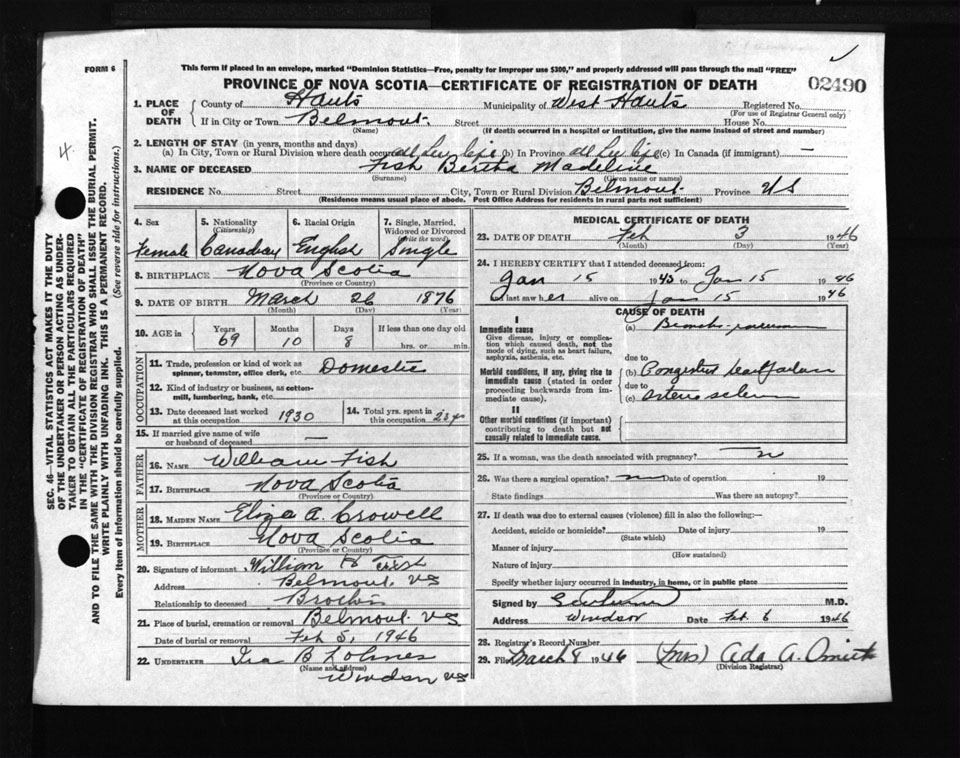 FORM 6
This form if placed in an envelope, marked "Dominion Statistics—Free, penalty for improper use $300," and properly addressed will pass through the mail "FREE"
PROVINCE OF NOVA SCOTIA—CERTIFICATE OF REGISTRATION OF DEATH
02490
1. PLACE OF DEATH
County of Hants Municipality of West Hants Registered No.
(For use of Registrar General only)
If in City or Town Belmont. Street House No.
(Name) (If death occurred in a hospital or institution, give the name instead of street and number)
2. LENGTH OF STAY (in years, months and days)
(a) In City, Town or Rural Division where death occurred all her life (b) In Province all her life (c) In Canada (if immigrant) —
3. NAME OF DECEASED Fish Bertha
(Surname) (Given name or names)
RESIDENCE No. Street City, Town or Rural Division Belmont. Province NS
(Residence means usual place of abode. Post Office Address for residents in rural parts not sufficient)
4. Sex 5. Nationality (Citizenship) 6. Racial Origin 7. Single, Married, Widowed or Divorced (Write the word)
Female Canadian English Single
8. BIRTHPLACE Nova Scotia
(Province or Country)
9. DATE OF BIRTH March 26 1876
(Month) (Day) (Year)
10. AGE in Years Months Days If less than one day old
69 10 8 hrs. or min.
OCCUPATION
11. Trade, profession or kind of work as spinner, teamster, office clerk, etc. Domestic
12. Kind of industry or business, as cotton-mill, lumbering, bank, etc.
13. Date deceased last worked at this occupation 1930 14. Total yrs. spent in this occupation
15. If married give name of wife or husband of deceased —
FATHER
16. NAME William Fish
17. BIRTHPLACE Nova Scotia
(Province or Country)
MOTHER
18. MAIDEN NAME Eliza A. Crowell
19. BIRTHPLACE Nova Scotia
(Province or Country)
20. Signature of informant William Fish
Address Belmont. NS
Relationship to deceased Brother
21. Place of burial, cremation or removal Belmont NS
Date of burial or removal Feb 5, 1946
22. UNDERTAKER Ira B Lohnes
(Name and address)
Windsor NS
MEDICAL CERTIFICATE OF DEATH
23. DATE OF DEATH Feb 3 1946
(Month) (Day) (Year)
24. I HEREBY CERTIFY that I attended deceased from:
Jan 15 1945 to Jan 15 1946
and last saw her alive on Jan 15 1946
CAUSE OF DEATH
I
Immediate cause (a)
Give disease, injury or complication which caused death, not the mode of dying, such as heart failure, asphyxia, asthenia, etc.
due to
Morbid conditions, if any, giving rise to immediate cause (stated in order proceeding backwards from immediate cause). (b) Congestive heart failure
due to
(c)
II
Other morbid conditions (if important) contributing to death but not causally related to immediate cause.
25. If a woman, was the death associated with pregnancy? no
26. Was there a surgical operation? no Date of operation 19
State findings Was there an autopsy?
27. If death was due to external causes (violence) fill in also the following:—
Accident, suicide or homicide? Date of injury 19
(State which)
Manner of injury
(How sustained)
Nature of injury
Specify whether injury occurred in industry, in home, or in public place
Signed by M.D.
Address Windsor Date Feb 6 1946
28. Registrar's Record Number
29. Filed March 8 1946 (Mrs) Ada A.
(Division Registrar)
4.
SEC. 46—VITAL STATISTICS ACT MAKES IT THE DUTY
OF THE UNDERTAKER OR PERSON ACTING AS UNDER-
TAKER TO OBTAIN ALL THE PARTICULARS REQUIRED
IN THE "CERTIFICATE OF REGISTRATION OF DEATH"
AND TO FILE THE SAME WITH THE DIVISION REGISTRAR WHO SHALL ISSUE THE BURIAL PERMIT.
WRITE PLAINLY WITH UNFADING INK. THIS IS A PERMANENT RECORD.
Every item of information should be carefully supplied. (See reverse side for instructions.)